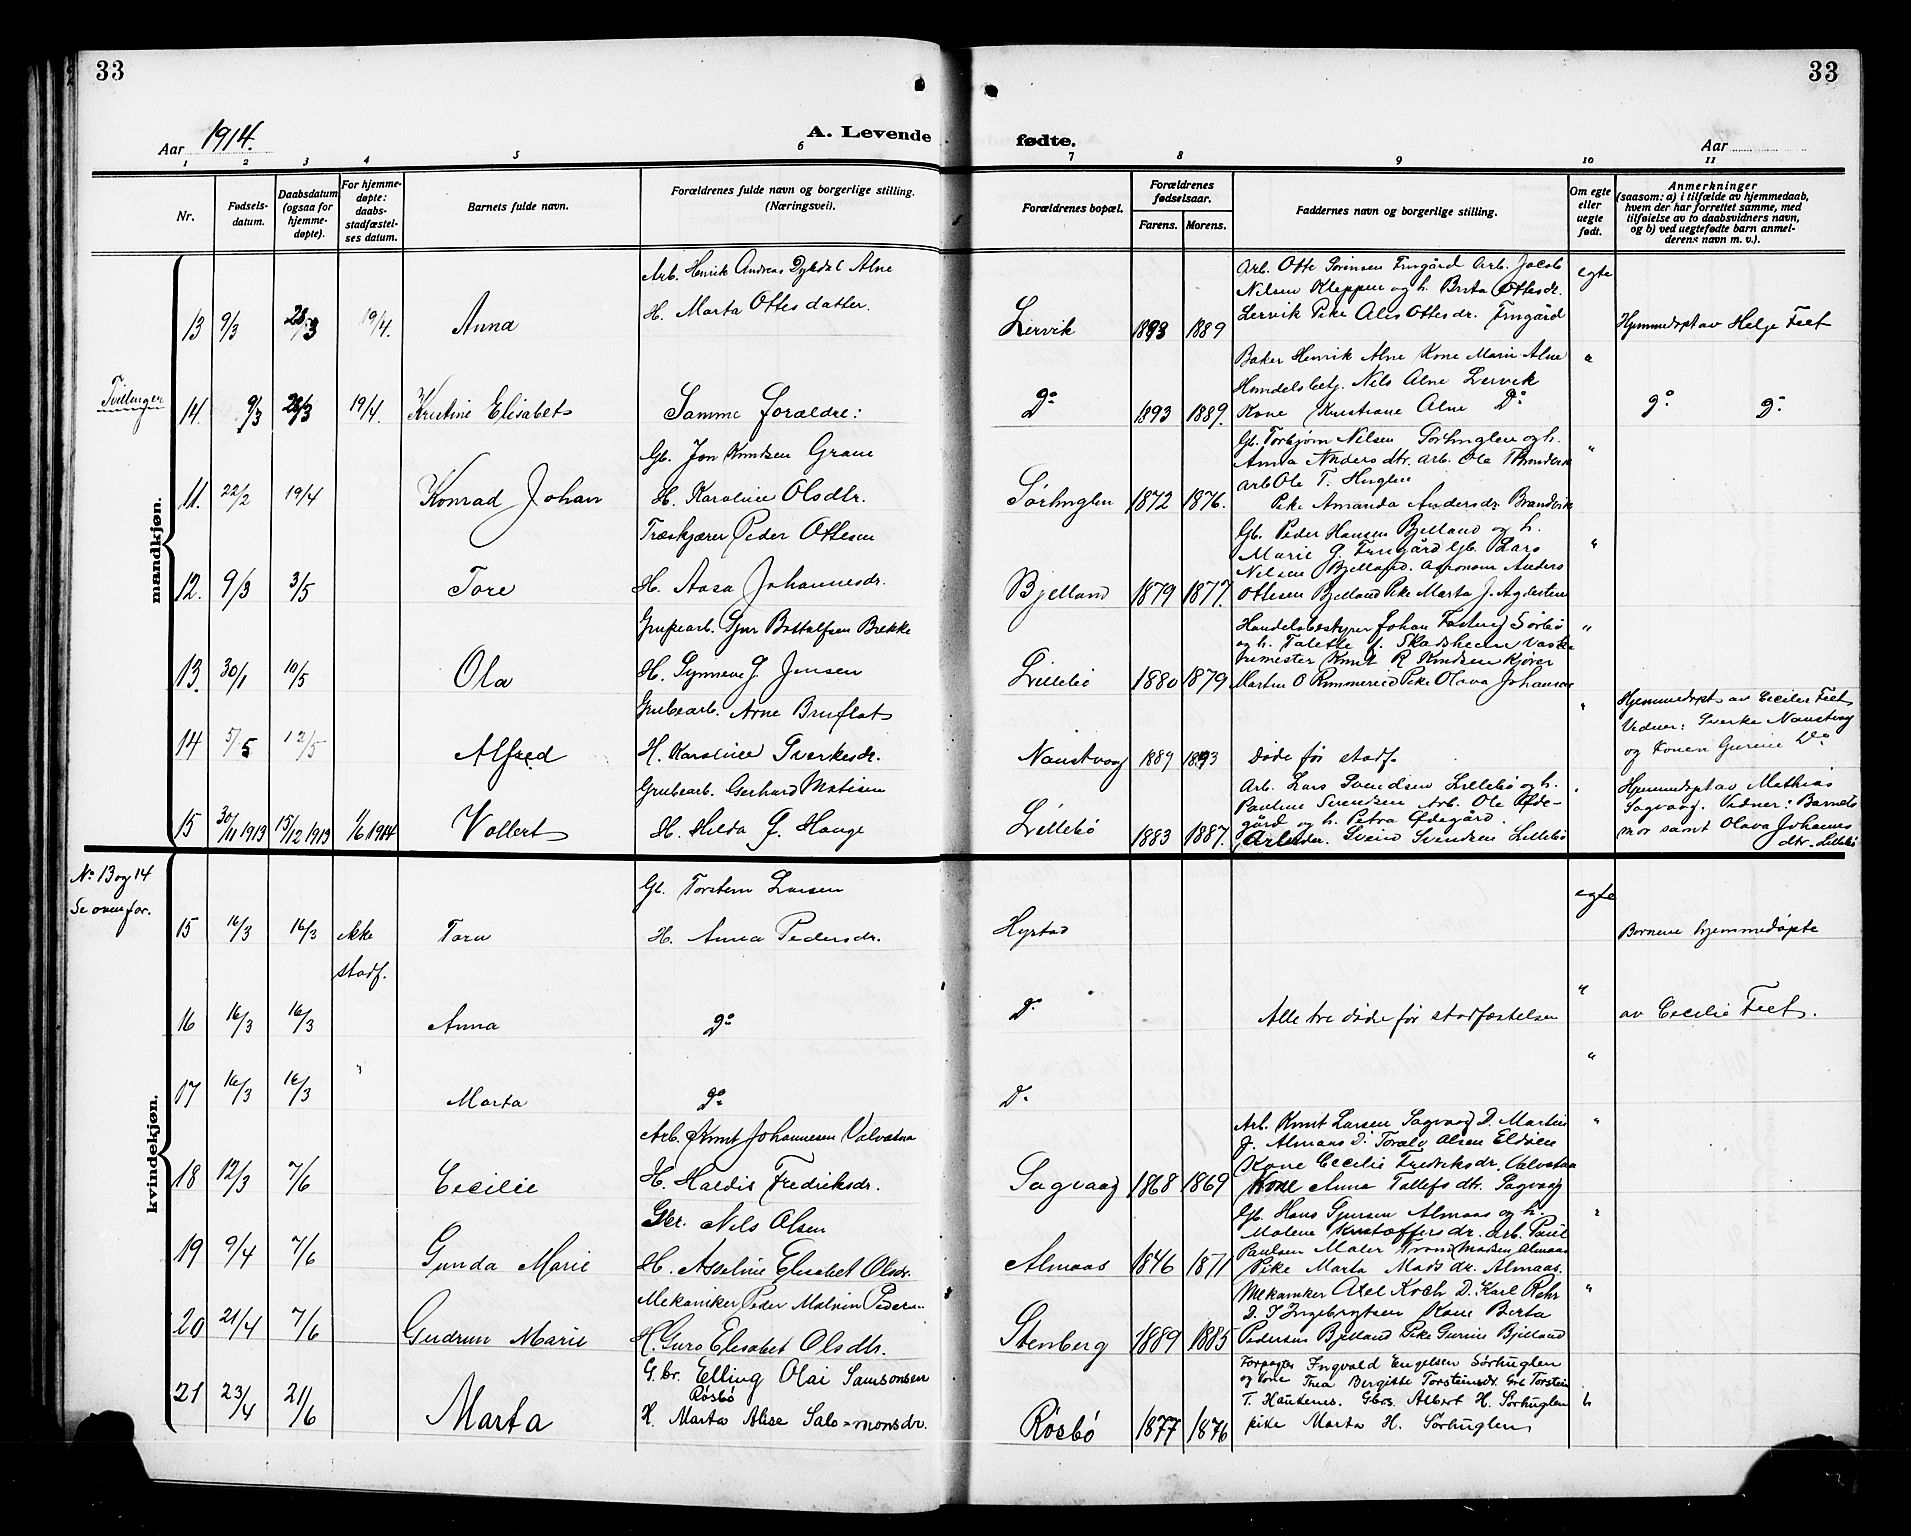 33
33
Aar 1914.
A. Levende
fødte.
Aar
1 2 3 4 5 6 7 8 9 10 11
Nr.
Fødsels-
datum.
Daabsdatum
(ogsaa for
hjemme-
døpte).
For hjemme-
døpte:
daabs-
stadfæstel-
ses datum.
Barnets fulde navn.
Forældrenes fulde navn og borgerlige stilling.
(Næringsvei).
Forældrenes bopæl.
Forældrenes
fødselsaar.
Farens. Morens.
Faddernes navn og borgerlige stilling.
Om egte
eller
uegte
født.
Anmerkninger
(saasom: a) i tilfælde av hjemmedaab,
hvem der har forrettet samme, med
tilføielse av to daabsvidners navn,
og b) ved uegtefødte barn anmel-
derens navn m. v.).
Tvillinger
mandkjøn.
13 9/3 28/3 19/4. Anna
Arb. Henrik Andreas Dykdal Alne
H. Marta Ottesdatter.
Lervik 1893 1889
Arb. Otte Sørensen Frugård Arb. Jacob
Nilsen Kleppen og h. Brita Ottesdr.
Lervik Pike Alis Ottesdr. Frugård
egte
Hjemmedøpt av Helge Feet
14. 9/3 28/3 19/4. Kristine Elisabet
Samme forældre:
Do 1893 1889.
Baker Henrik Alne Kone Marie Alne
Handelsbetj. Nils Alne Lervik
Kone Kristiane Alne Do
"
Do Do
11. 22/2 19/4 Konrad Johan
Gb. Jon Knutsen Grane
H. Karoline Olsdtr.
Sørhuglen 1872 1876.
Gb. Torbjørn Nilsen Sørhuglen og h.
Anna Andersdtr. Arb. Ole
Arb Ole T. Huglen
Pike Amanda Andersdr. Brandvik
"
12. 9/3 3/5 Tore
Træskjærer Peder Ottesen
H. Aasa Johannesdr.
Bjelland 1879 1877.
Gb. Peder Hansen Bjelland og h.
Marie G. Frugård Gb. Lars
Nilsen Bjelland. Agronom Anders
Ottesen Bjelland Pike Marta J. Agdestein
"
13. 30/1 10/5 Ola
Grubearb. Gjur Bottolfsen Brekke
H. Synneve G. Jensen
Lillebö 1880 1879
Handelsbestyrer Johan Sørbö
og h. Talette f. Skadsheim
Knut R. Knudsen
Martin O Rommereid Pike Olava Johansen
"
14 5/5 12/5 Alfred
Grubearb. Arne Bruflat
H. Karoline Sverkesdr.
Naustvaag 1889 1893 Døde før stadf.
"
Hjemmedøpt av Cecilie Feet
Vidner: Sverke Naustvaag
og Konen Gurine Do
15 30/11 1913 15/12 1913 1/6 1914 Vollert
Grubearb. Gerhard Matisen
H. Hilda G. Hauge
Lillebö 1883 1887.
Arb. Lars Svendsen Lillebö og h.
Pauline Svendsen Arb. Ole Øde-
gård og h. Petra Ødegård.
Arbeider. Svend Svendsen Lillebö
"
Hjemmedøpt av Mathias
Sagvaag. Vidner: Barnets
mor samt Olava Johannes
dtr. Lillebö
No 13 og 14
se ovenfor.
kvindekjøn.
15 16/3 16/3 ikke
stadf. Tora
Gb. Torstein Larsen
H. Anna Pedersdr.
Hystad
egte
Børnene hjemmedøpte
16 16/3 16/3 Anna Do Do
Alle tre døde før stadfæstelsen
"
av Cecilie Feet.
17 16/3 16/3 " Marta Do Do "
18 12/3 7/6 Cecilie
Arb. Knut Johannesen Valvatna
H. Haldis Fredriksdr.
Sagvaag 1868 1869
Arb. Knut Larsen Sagvaag D. Martin
J. Almaas D. Toralv Olsen Eldøien
Kone Cecilie Fredriksdr. Valvatna
Kone Anna Tollefsdtr. Sagvaag
"
19 9/4 7/6 Gunda Marie
Gbr. Nils Olsen
H. Asseline Elisabet Olsdr.
Almaas 1846 1871
Gb. Hans Gjursen Almaas og h.
Malene Kristoffersdr. Arb. Paul
Paulsen Maler Trond Madsen Almaas
Pike Marta Madsdr. Almaas.
"
20 21/4 7/6 Gudrun Marie
Mekaniker Peder Malvin Pedersen
H. Guro Elisabet Olsdtr.
Stenberg 1889 1885
Mekaniker Axel Koch D. Karl Røhr
D. J Ingebrigtsen Kone Berta
Pedersen Bjelland Pike Gurine Bjelland
"
21 23/4 21/6 Marta
G.br. Elling Olai Samsonsen
Røsbø
H. Marta Alise Salo=monsdr.
Røsbø 1877 1876
Forpagter Ingvald Engelsen Sørhuglen
og kone Thea Bergitte Torsteinsdr. Grb Torstein
T. Haukenes. Gbrs. Albert H. Sørhuglen
pike Marta H. Sørhuglen
"